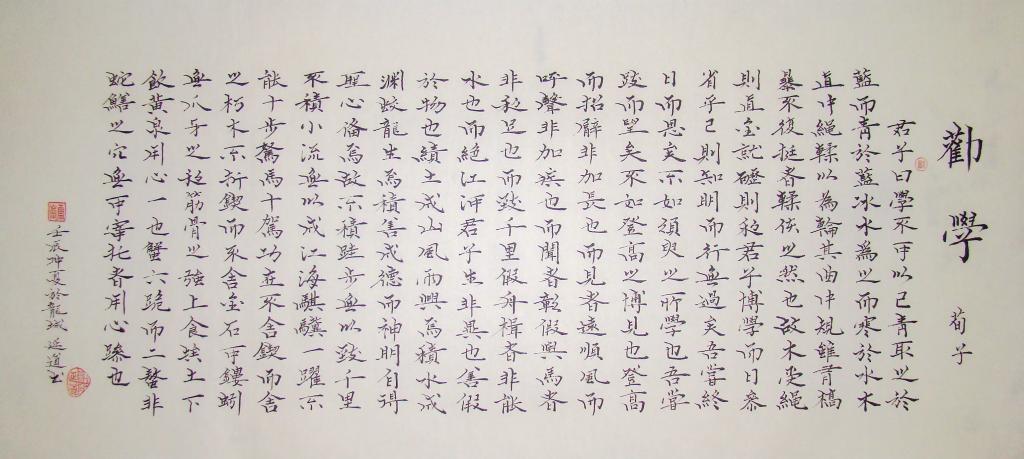 勸學
荀子
君子曰學不可以已青取之於
藍而青於藍冰水為之而寒於水木
直中繩輮以為輪其曲中規雖有槁
暴不復挺者輮使之然也故木受繩
則直金就礪則利君子博學而日參
省乎己則知明而行無過矣吾嘗終
日而思矣不如須臾之所學也吾嘗
跂而望矣不如登高之博見也登高
而招臂非加長也而見者遠順風而
呼聲非加疾也而聞者彰假輿馬者
非利足也而致千里假舟楫者非能
水也而絕江河君子生非異也善假
於物也積土成山風雨興焉積水成
淵蛟龍生焉積善成德而神明自得
聖心備焉故不積跬步無以致千里
不積小流無以成江海騏驥一躍不
能十步駑馬十駕功在不舍鍥而舍
之朽木不折鍥而不舍金石可鏤蚓
無爪牙之利筋骨之強上食埃土下
飲黃泉用心一也蟹六跪而二螯非
蛇鱔之穴無可寄托者用心躁也
壬辰仲夏於龍城延道书